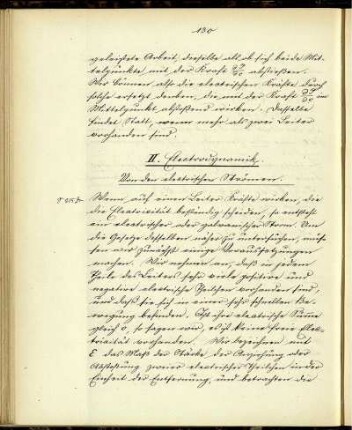 130
geleistete Arbeit, dieselbe als ob sich beide Mit-
telpunkte mit der Kraft abstießen.
Wir können also die elektrischen Kräfte durch
solche ersetzt denken, die mit der Kraft im
Mittelpunkt abstoßend wirken. Dasselbe
findet Statt, wenn mehr als zwei Leiter
vorhanden sind.
II. Electrodynamik.
Von den elektrischen Strömen.
Wenn auf einen Leiter Kräfte wirken, die
die Electricität beständig scheiden, so entsteht
ein elektrischer oder galvanischer Strom. Um
die Gesetze desselben näher zu untersuchen, müs-
sen wir zunächst einige Voraussetzungen
machen. Wir nehmen an, daß in jedem
Theile des Leiters sehr viele positive und
negative elektrische Theilchen vorhanden sind,
und daß sie sich in einer sehr schnellen Be-
wegung befinden. Ist ihre elektrische Summe
gleich 0, so sagen wir, es ist keine freie Elec-
tricität vorhanden. Wir bezeichnen mit
E das Maß der Stärke, der Anziehung oder
Abstoßung zweier elektrischer Theilchen in der
Einheit der Entfernung, und betrachten die